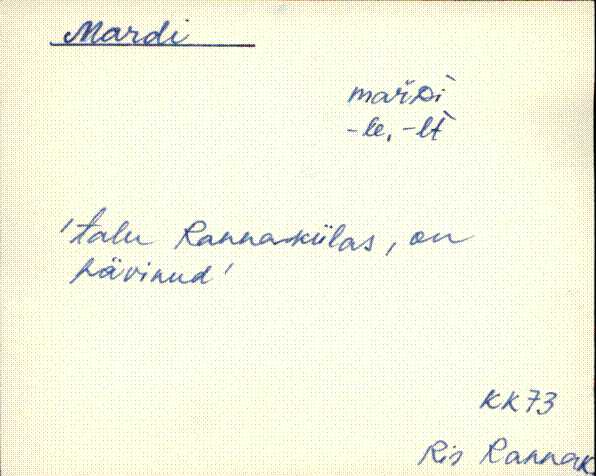 Mardi
mařDì
-le, -lt̀
'talu Rannakülas, on
hävinud'
KK73
Ris Rannak